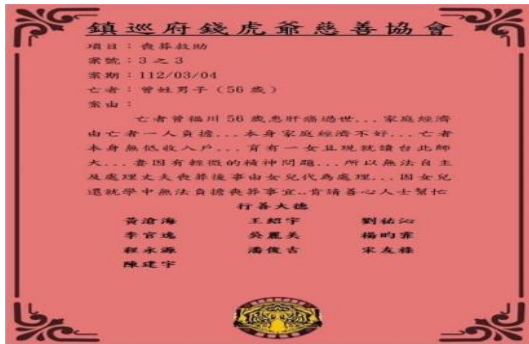 鎮巡府錢虎爺慈善協會
項目：喪葬救助
案號：3之3
案期：112/03/04
亡者：曾姓男子（56歲）
案由：
亡者曾福川56歲患肝癌過世...家庭經濟
由亡者一人負擔...本身家庭經濟不好...亡者
本身無低收入戶...育有一女且現就讀台北師
大...妻因有輕微的精神問題...所以無法自主
及處理丈夫喪葬後事由女兒代為處理...因女兒
還就學中無法負擔喪葬事宜..肯請善心人士幫忙
行善大德
黃滄海 王紹宇 劉祐沁
李官逸 吳麗美 楊昀霏
程永源 潘俊吉 宋友祿
陳建宇